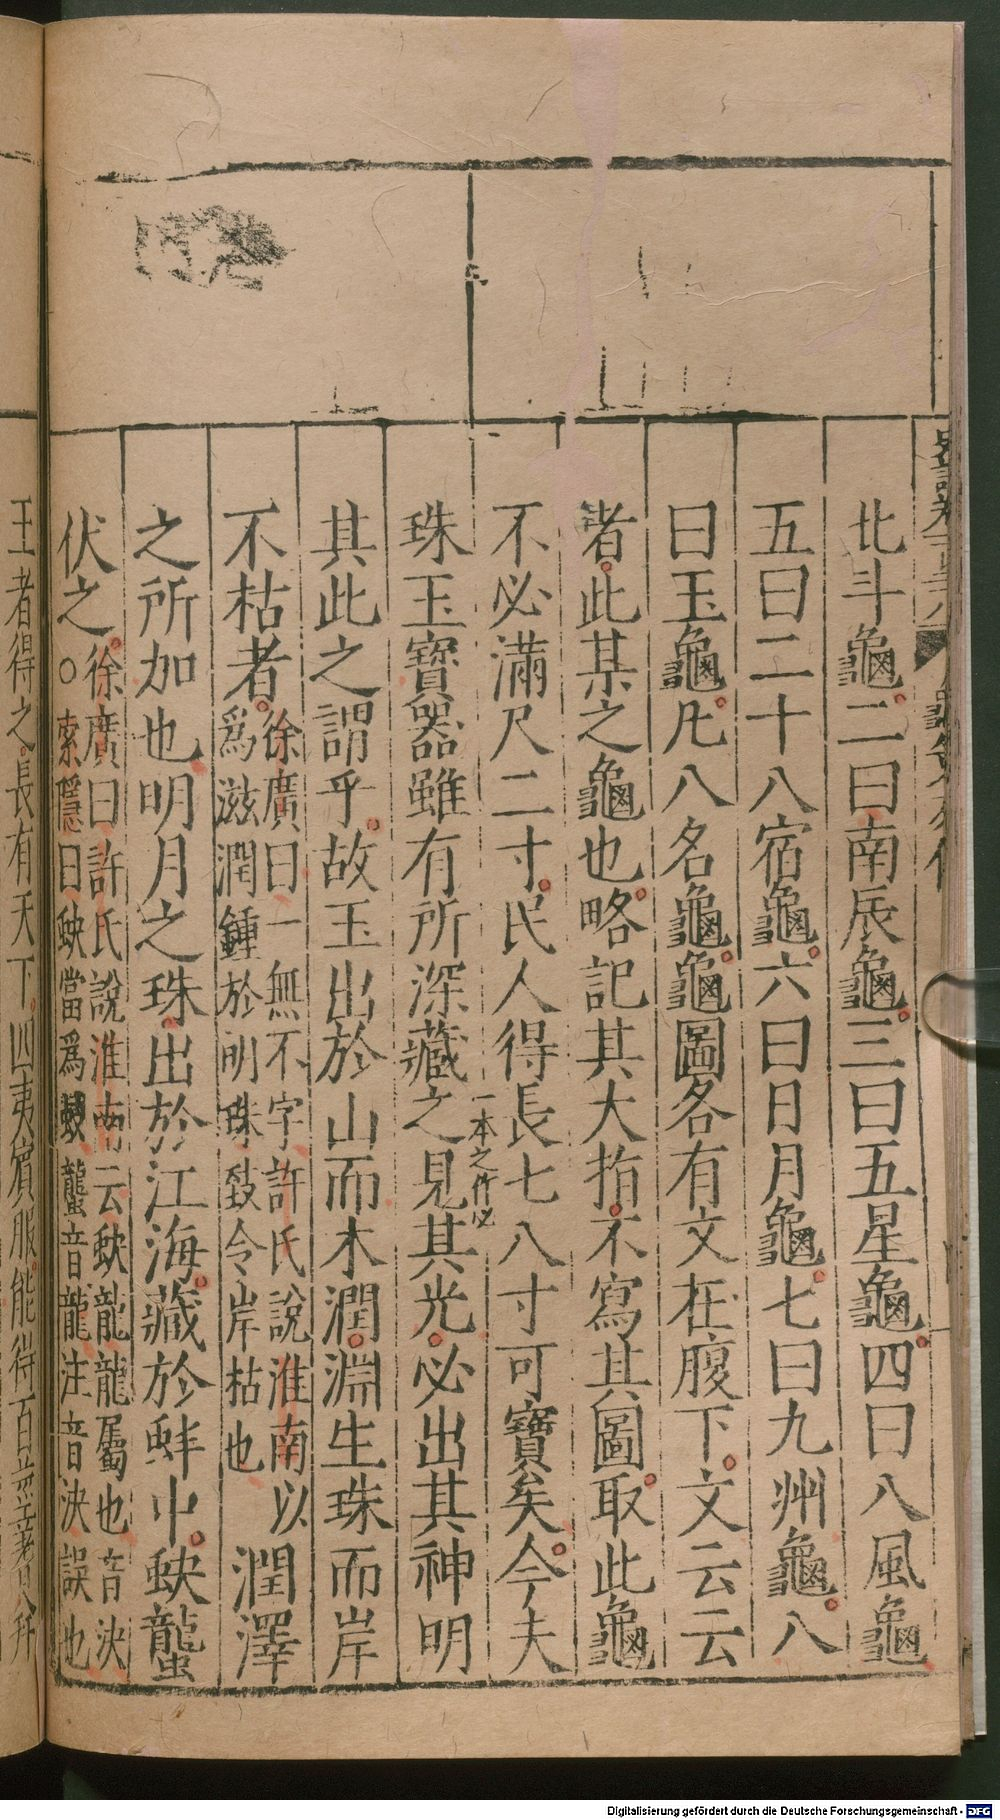 北斗龜二曰南辰龜三曰五星龜四曰八風龜
五曰二十八宿龜六曰日月龜七曰九州龜八
曰玉龜凡八名龜龜圖各有文在腹下文云云
者此某之龜也略記其大指不寫其圖取此龜
不必滿尺二寸民人得長七八寸可寶矣今夫
珠玉寶器雖有所深藏之見其光必出其神明
一本之作必
其此之謂乎故玉出於山而木潤淵生珠而岸
不枯者徐廣曰一無不字許氏說淮南以
爲滋潤鍾於明珠致令岸枯也潤澤
之所加也明月之珠出於江海藏於蚌中蚗蠪
伏之徐廣曰許氏說淮南云蚗龍龍屬也音決
○索隱曰蚗當爲蛟蠪音龍注音決誤也
王者得之長有天下四夷賓服能得百莖蓍
Digitalisierung gefördert durch die Deutsche Forschungsgemeinschaft - DFG